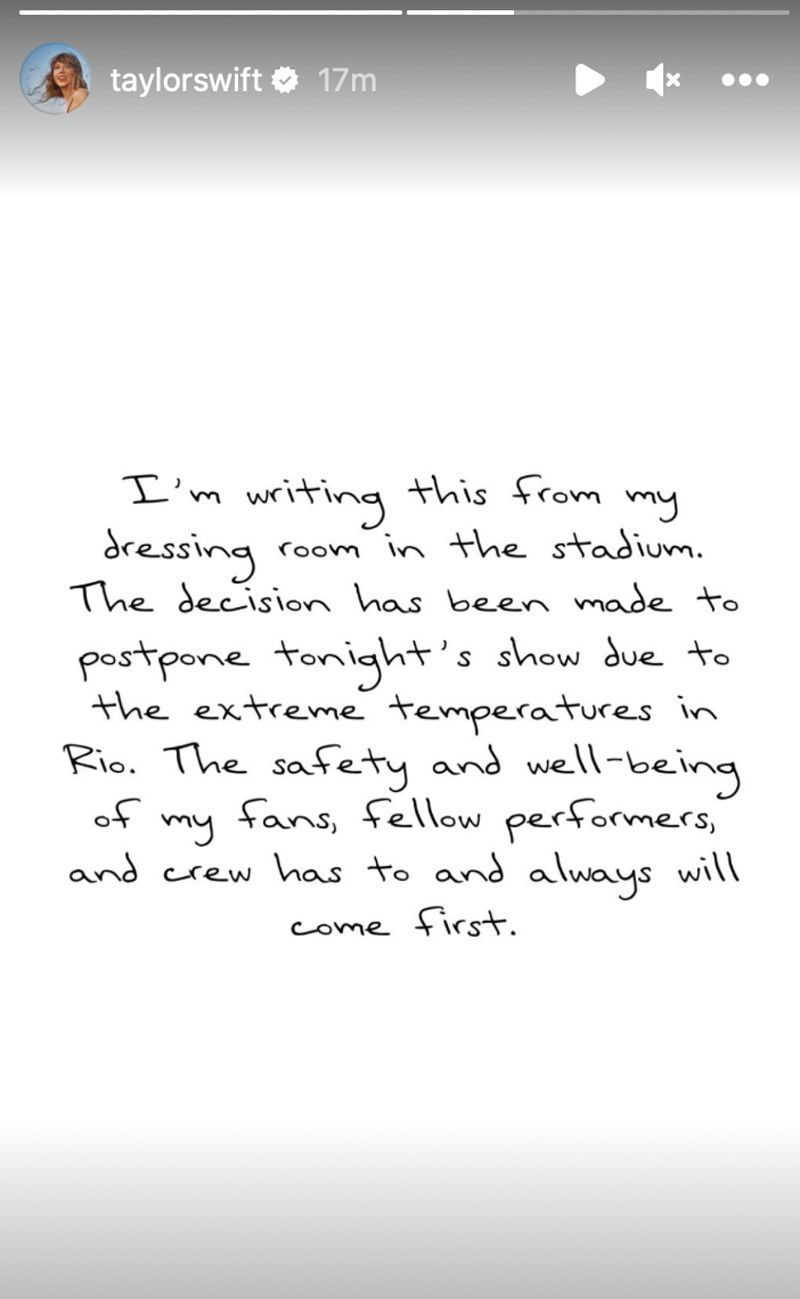 taylorswift 17m
I'm writing this from my
dressing room in the stadium.
The decision has been made to
postpone tonight's show due to
the extreme temperatures in
Rio. The safety and well-being
of my fans, fellow performers,
and crew has to and always will
come first.